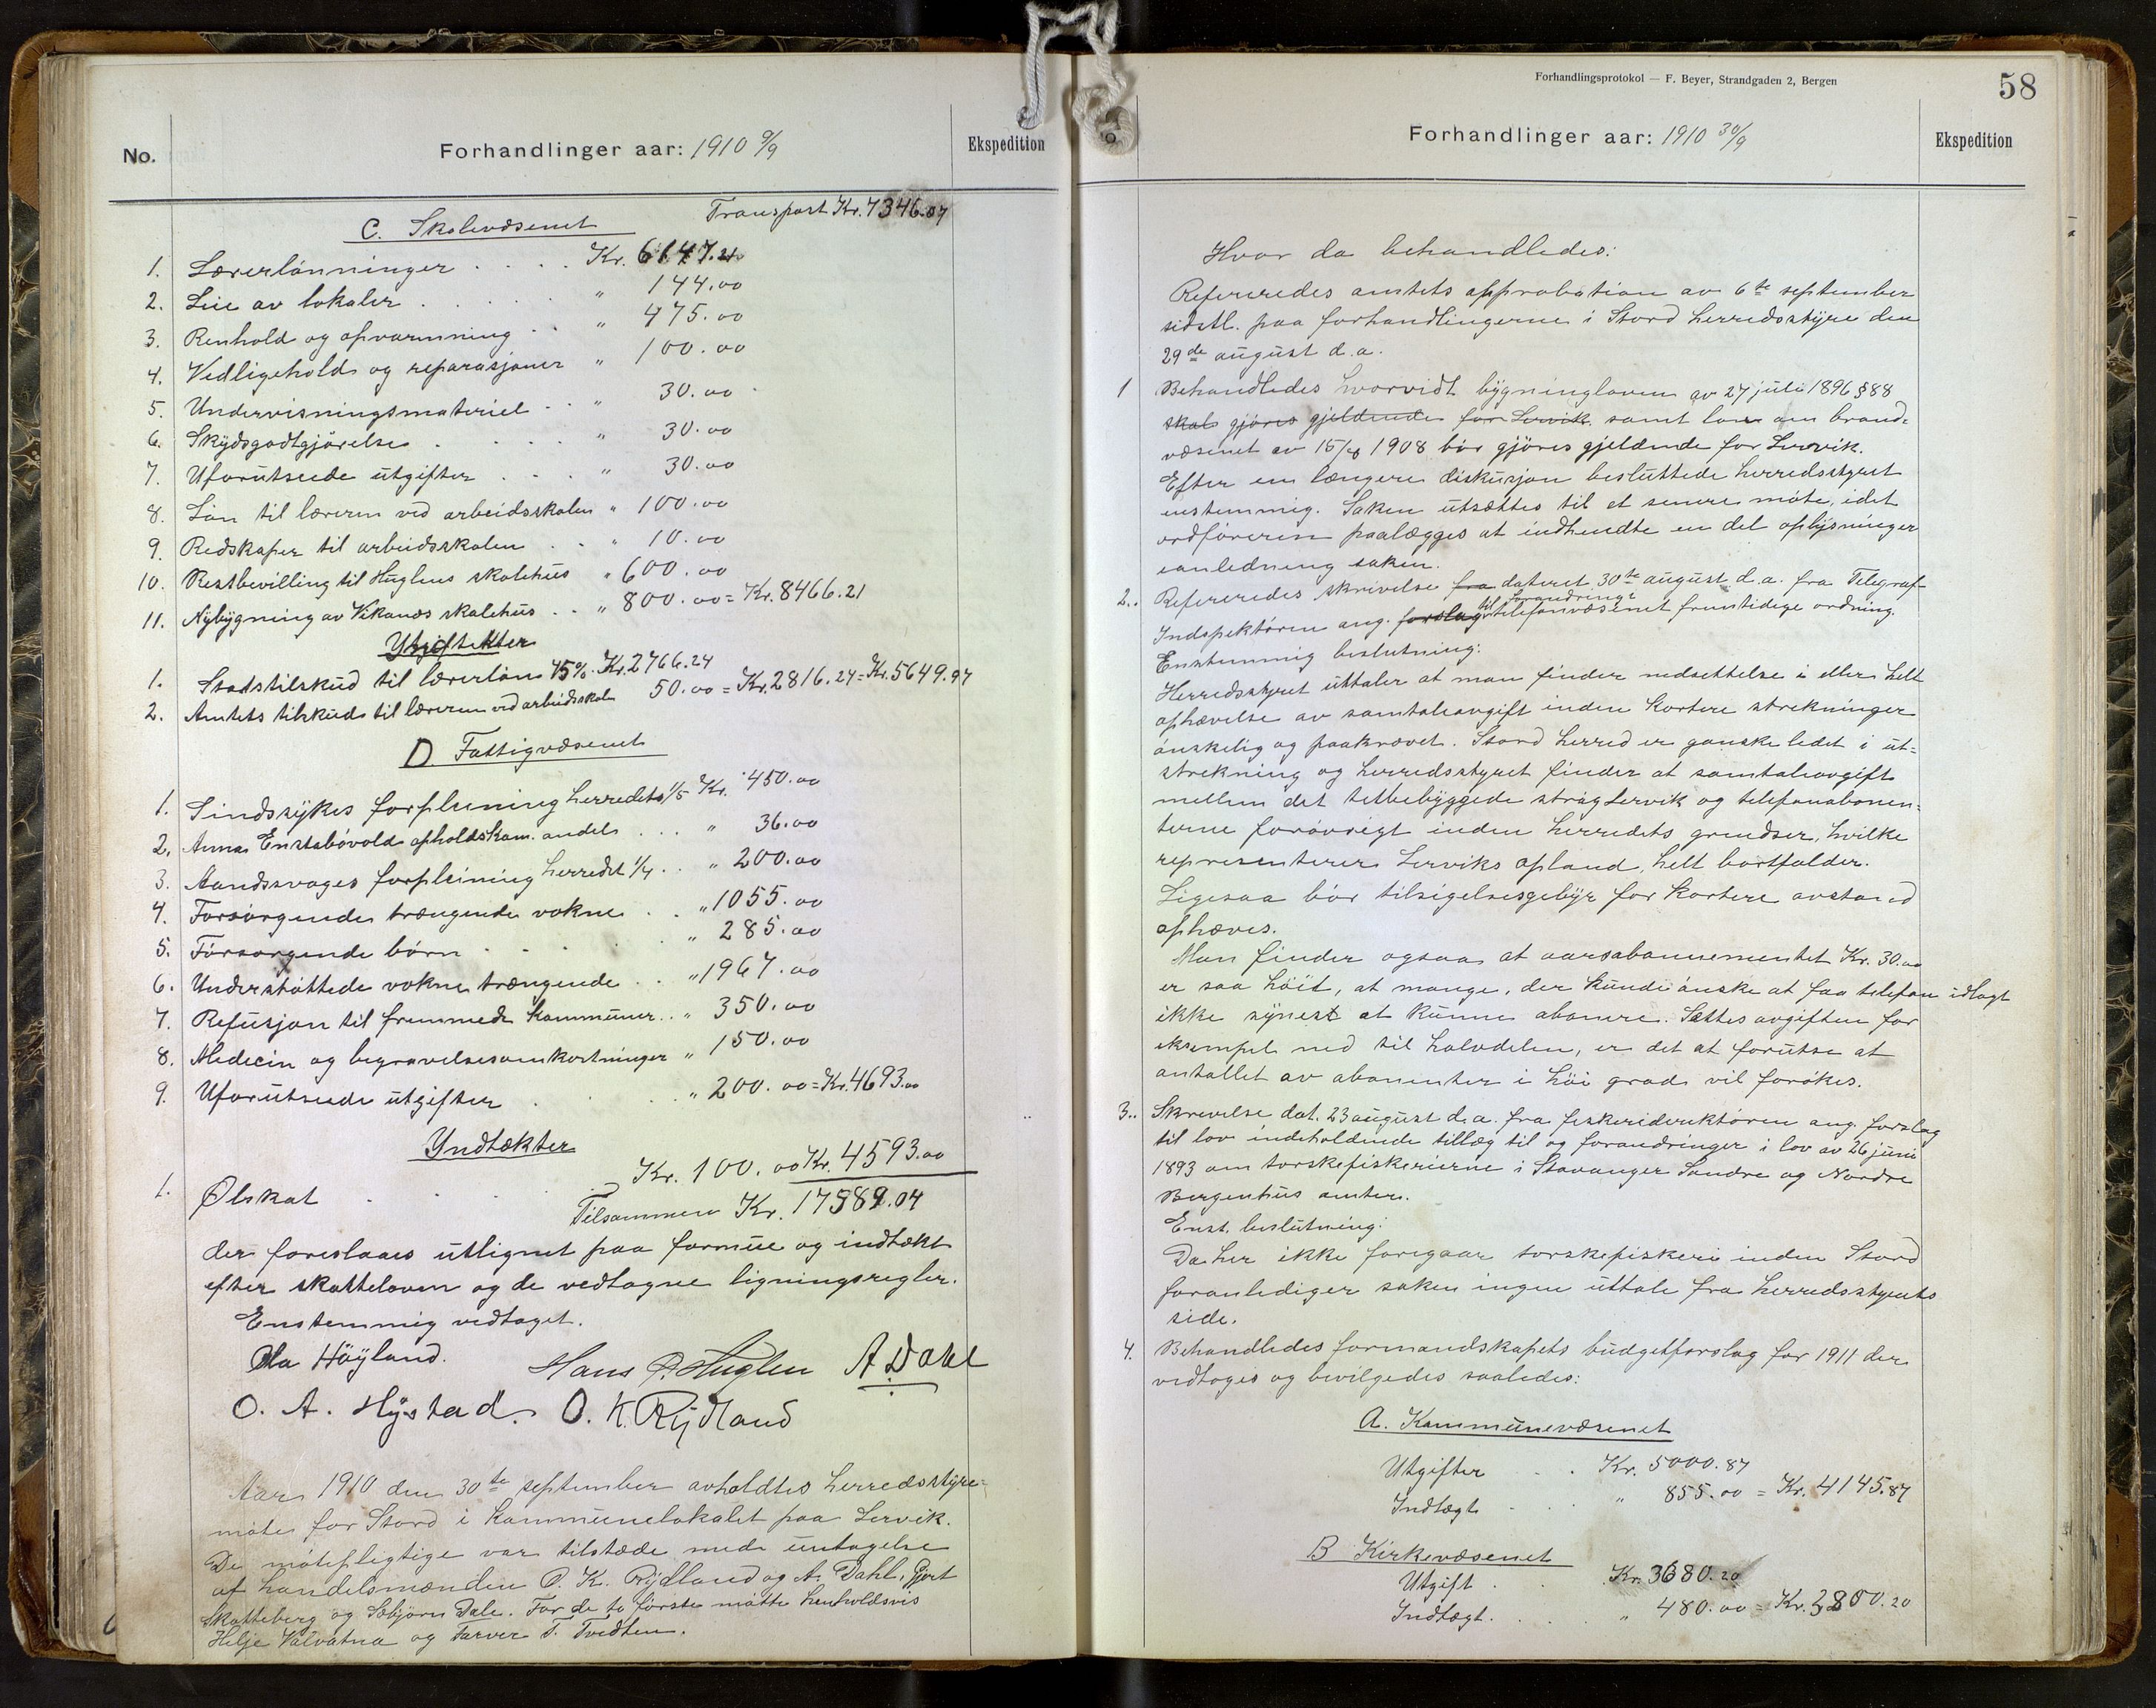 No.
Forhandlinger aar: 1910 9/9
Ekspedition
Transport Kr. 7346.07
C. Skolevæsenet
1. Lærerlønninger . . . . Kr. 6147.21
2. Leie av lokaler . . . . . " 144.00
3. Renhold og opvarmning . . " 475.00
4. Vedligeholds og reparasjoner " 100.00
5. Undervisningsmateriel . . " 30.00
6. Skydsgodtgjørelse . . . . " 30.00
7. Uforutseede utgifter . . . " 30.00
8. Løn til læreren ved arbeidsskolen " 100.00
9. Redskaper til arbeidsskolen . . " 10.00
10. Restbevilling til Huglens skolehus " 600.00
11. Nybygning av Vikanes skolehus . . " 800.00 = Kr. 8466.21
1. Stadstilskud til lærerløn 45% Kr. 2766.24
2. Amtets tilskud til læreren ved arbeidsskole 50.00 = Kr. 2816.24 = Kr. 5649.97
D. Fattigvæsenet
1. Sindssykes forpleining herredets 1/5 Kr. 450.00
2. Anna Enstabøvolds opholdskom. andel . . . " 36.00
3. Aandssvages forpleining herredet 1/4 . . " 200.00
4. Forsørgende trængende voksne . . " 1055.00
5. Forsørgende børn . . . . " 285.00
6. Understøttede voksne trængende . . " 1967.00
7. Refusjon til fremmede kommuner . . " 350.00
8. Medecin og begravelsesomkostninger " 150.00
9. Uforutseede utgifter . . . " 200.00 = Kr. 4693.00
Yndtækter
1. Ølskat . . . . Kr. 100.00 Kr. 4593.00
Tilsammen Kr. 17589.04
der foreslaaes utlignet paa formue og indtækt
efter skatteloven og de vedtagne ligningsregler.
Enstemmig vedtaget.
Ola Høyland. Hans P. Huglen A Dahl
O. A. Hystad. O. K. Rydland
Aar 1910 den 30te september avholdtes herredsstyre-
møte for Stord i kommunelokalet paa Lervik.
De møtepligtige var tilstæde med untagelse
af handelsmænden O. K. Rydland og A. Dahl, Gjert
Skatteberg og Sebjørn Dale. For de to første møtte henholdsvis
Helje Valvatna og Tarver T. Tvedten.
Forhandlingsprotokol — F. Beyer, Strandgaden 2, Bergen
58
Forhandlinger aar: 1910 30/9
Ekspedition
Hvor da behandledes:
Refereredes amtets approbation av 6te september
sidstl. paa forhandlingerne i Stord herredsstyre den
29de august d.a.
1 Behandledes hvorvidt bygningloven av 27 juli 1896 § 88
skal gjøres gjeldende for Lervik samt lov om brand-
væsenet av 15/8 1908 bør gjøres gjeldende for Lervik.
Efter en længere diskusjon besluttede herredsstyret
enstemmig. Saken utsættes til et senere møte, idet
ordføreren paalægges at indhendte en del oplysninger
ianledning saken.
2.. Refereredes skrivelse fra dateret 30te august d.a. fra Telegraf-
Indspektøren ang. forslag til forandringer telefonvæsenet fremtidige ordning.
Enstemmig beslutning:
Herredsstyret uttaler at man finder nedsettelse i eller helt
ophævelse av samtaleavgift inden kortere strekninger
ønskelig og paakrævet. Stord herred er ganske lidet i ut-
strekning og herredsstyret finder at samtaleavgift
mellem det tetbebyggede strøg Lervik og telefonabonen-
terne forøvrigt inden herredets grendser, hvilke
representerer Lerviks opland, helt bortfalder.
Ligesaa bør tilsigelsesgebyr for kortere avstand
ophæves.
Man finder ogsaa at aarsabonnementet Kr. 30.00
er saa høit, at mange, der kunde ønske at faa telefon idlagt
ikke synest at kunne abonere. Sættes avgiften for
eksempel ned til halvdelen, er det at forutse at
antallet av abonenter i høi grad vil forøkes.
3.. Skrevelse dat. 23 august d.a. fra fiskeridirektøren ang. forslag
til lov indeholdende tillæg til og forandringer i lov av 26 juni
1893 om torskefiskerierne i Stavanger Søndre og Nordre
Bergenhus amter.
Enst. beslutning:
Da her ikke foregaar torskefiskeri inden Stord
foranlediger saken ingen uttale fra herredsstyrets
side.
4. Behandledes formandskapets budgetforslag for 1911 der
vedtoges og bevilgedes saaledes:
A. Kommunevæsenet
Utgifter . . Kr. 5000.87
Indtægt . . . " 855.00 = Kr. 4145.87
B Kirkevæsenet
Utgift . . Kr. 3680.20
Indtægt . . . " 480.00 = Kr. 3200.20